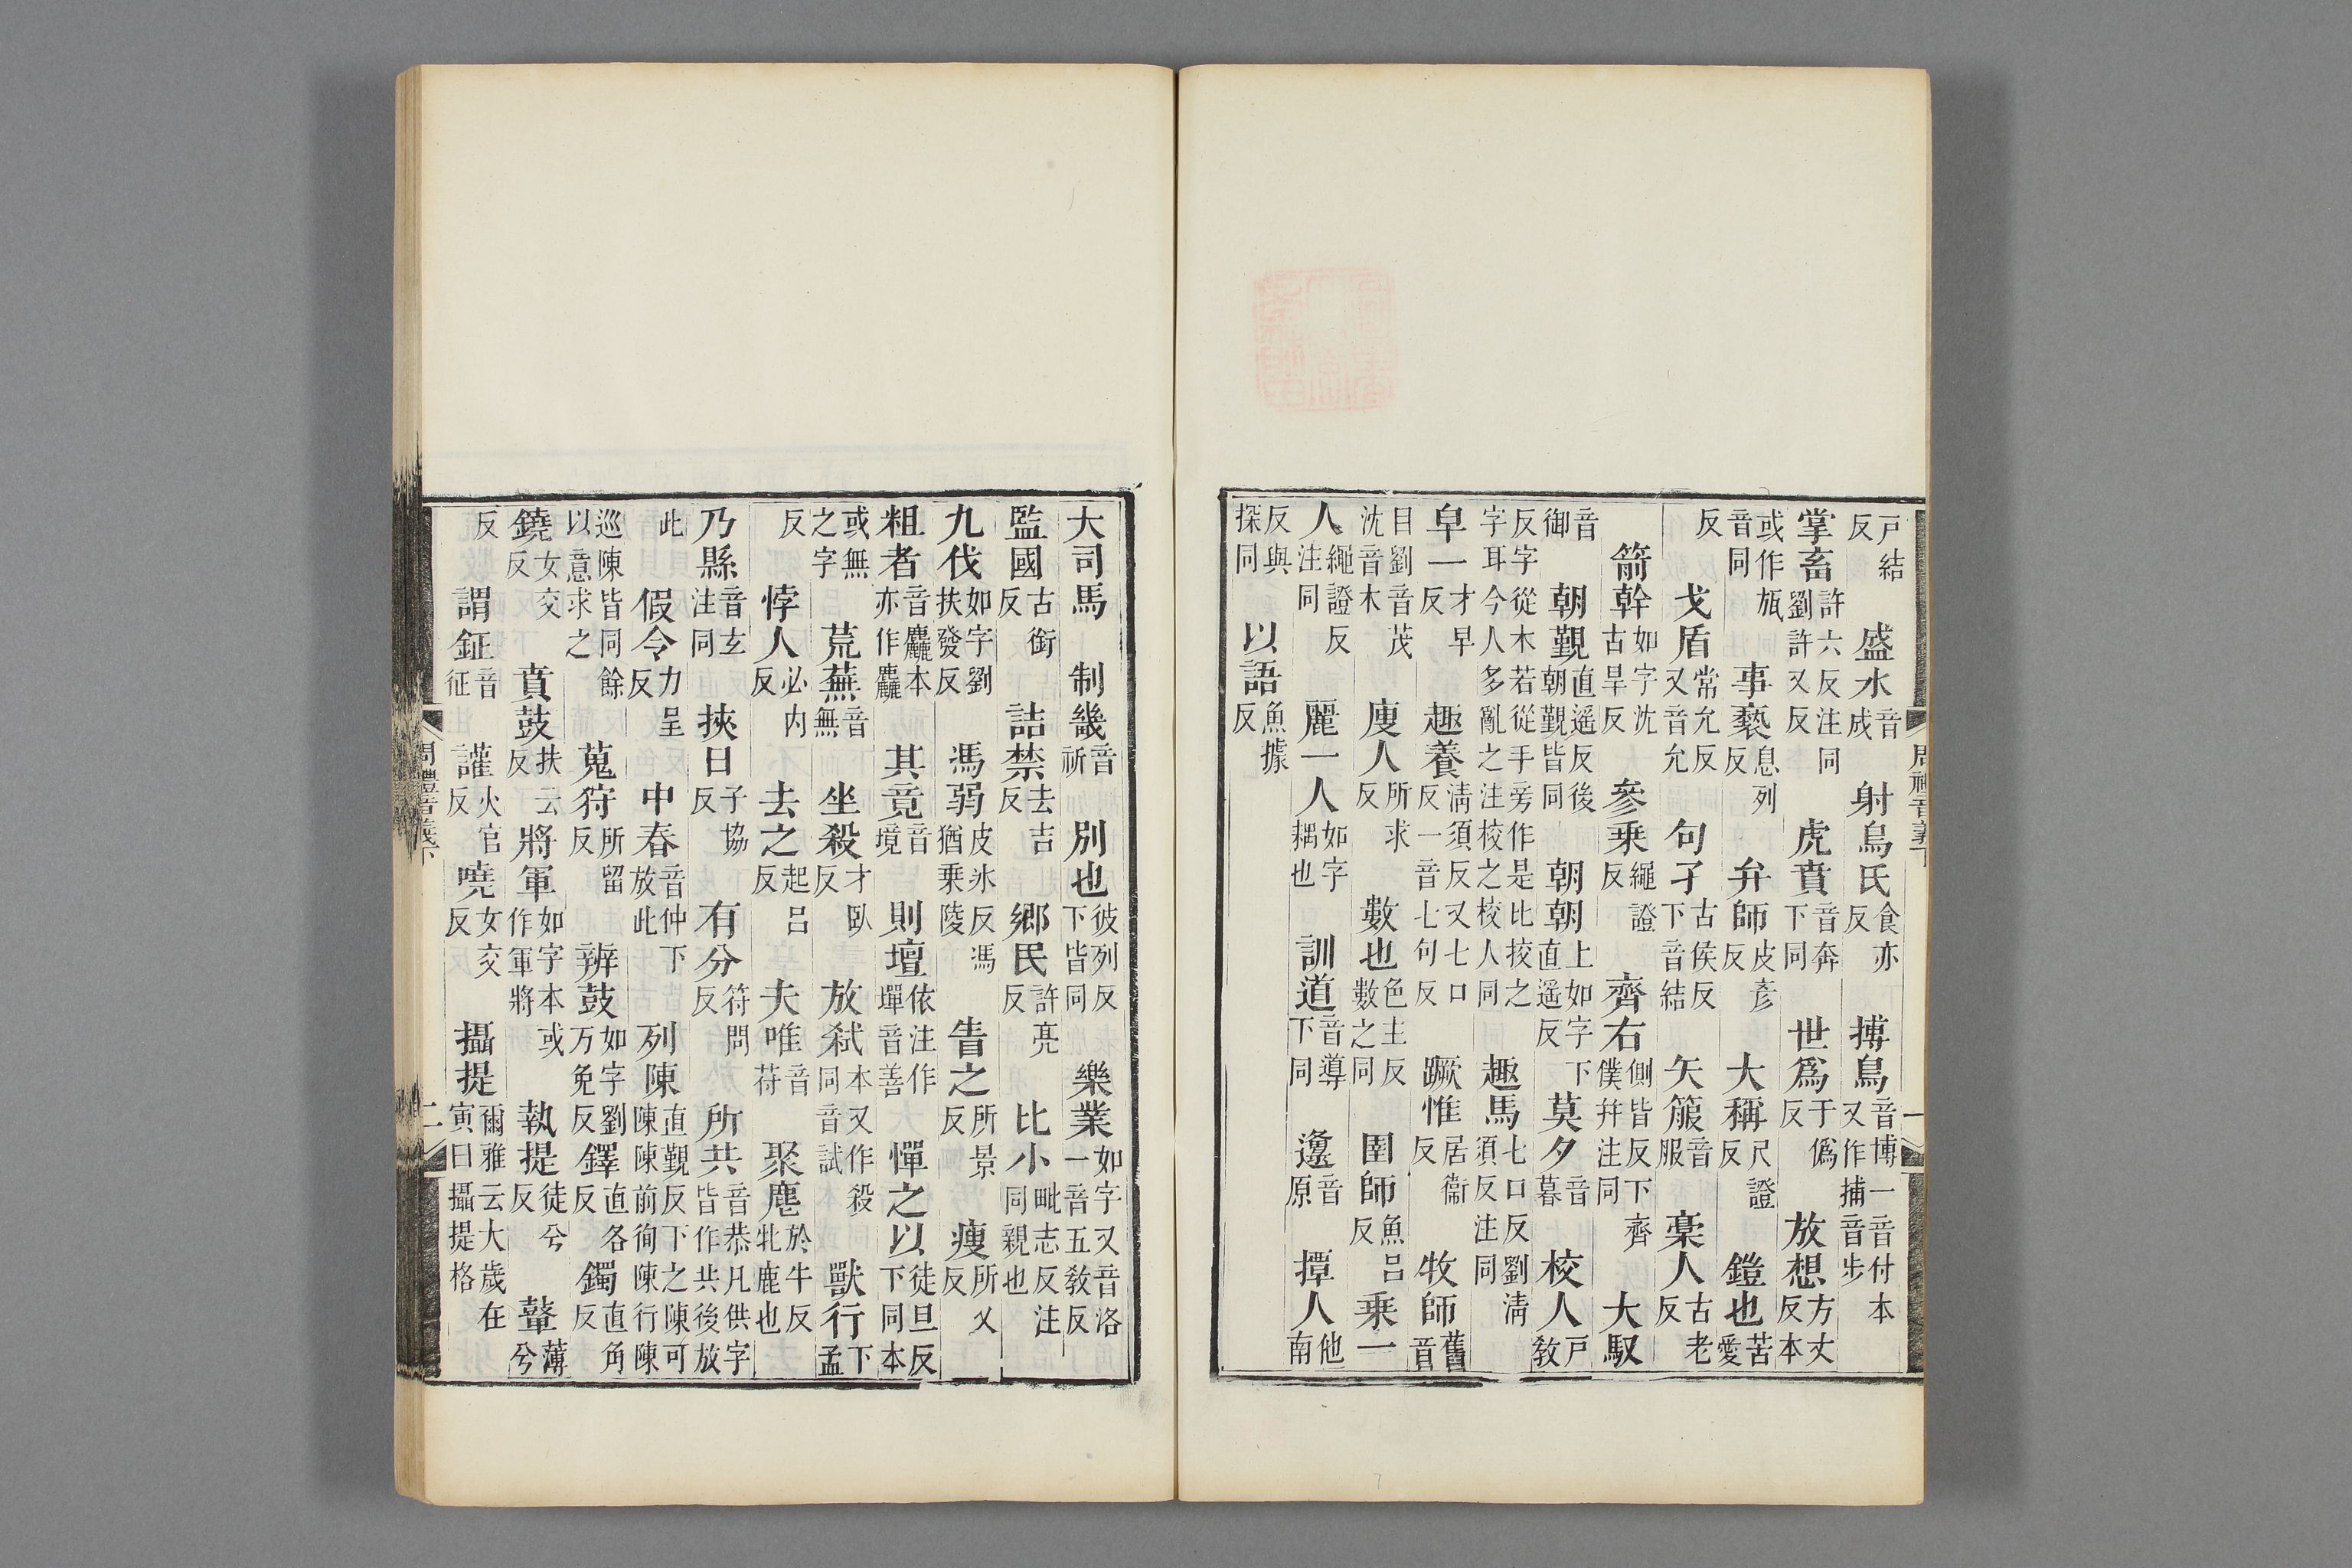 戸結反　盛水音成　射鳥氏食亦反　搏鳥音博一音付本又作捕音步
掌畜許六反注同劉許又反　虎賁音奔下同　世爲于僞反　放想方丈反本
或作瓬音同　事褻息列反　弁師皮彥反　大稱尺證反　鎧也苦愛
反　戈盾常允反又音允　句孑古侯反下音結　矢箙音服　槀人古老反
箭幹如字沈古旱反　參乗繩證反　齊右側皆反下齊僕并注同　大馭
音御　朝覲直遥反後朝覲皆同　朝朝上如字下直遥反　莫夕音暮　校人戸敎
反字從木若從手旁作是比挍之字耳今人多亂之注校之校人同　趣馬七口反劉清須反注同
皁一才早反　趣養清須反又七口反一音七句反　蹶惟居衞反　牧師舊音
目劉音茂沈音木　廋人所求反　數也色主反數之同　圉師魚吕反　乗一
人繩證反注同　麗一人如字耦也　訓道音導下同　邍音原　撢人他南
反與探同　以語魚據反
周禮音義下
一
大司馬　制畿音祈　別也彼列反下皆同　樂業如字又音洛一音五敎反
監國古銜反　詰禁去吉反　鄉民許亮反　比小毗志反注同親也
九伐如字劉扶發反　馮弱皮氷反馮猶乗陵　眚之所景反　瘦所乂反
粗者音麤本亦作麤　其竟音境　則壇依注作墠音善　憚之以徒旦反下同本
或無之字　荒蕪音無　坐殺才臥反　放弒本又作殺同音試　獸行下孟
反　悖人必内反　去之起吕反　夫唯音苻　聚麀於牛反牝鹿也
乃縣音玄注同　挾日子協反　有分符問反　所共音恭凡供字皆作共後放
此　假令力呈反　中春音仲下放此　列陳直覲反下之陳可陳陳前徇陳行陳
巡陳皆同餘以意求之　蒐狩所留反　辨鼓如字劉万免反　鐸直各反　鐲直角反
鐃女交反　賁鼓扶云反　將軍如字本或作軍將　執提徒兮反　鼙薄兮
反　謂鉦音征　讙火官反　曉女交反　攝提爾雅云大歲在寅曰攝提格
周禮音義下
二